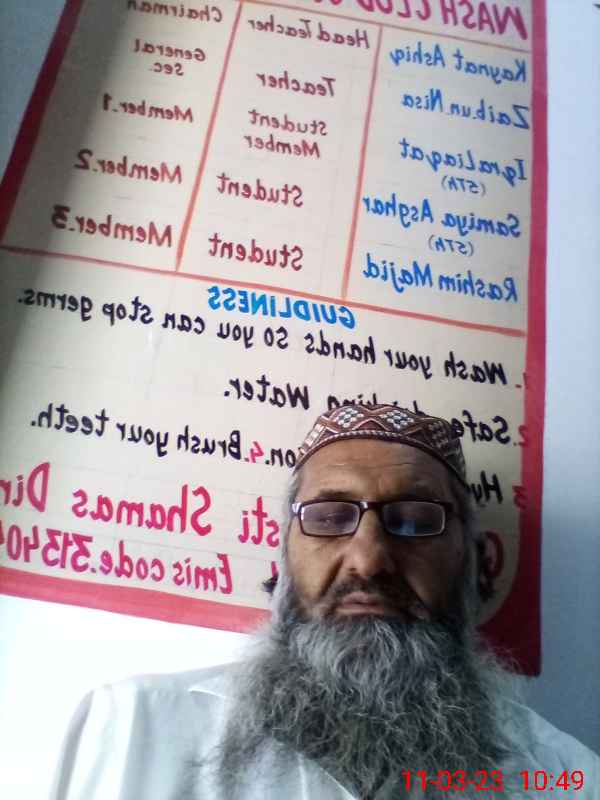 WASH CLUB
Kaynat Ashiq Head Teacher Chairman
Zaib.un.Nisa Teacher General Sec.
Iqra Liaqat (STA) Student Member Member.1
Samiya Asghar (STA) Student Member.2
Rashim Majid Student Member.3
GUIDLINESS
1. Wash your hands so you can stop germs.
2. Safe Water.
3 4. Brush your teeth.
Shamas
Emis code.
11-03-23 10:49